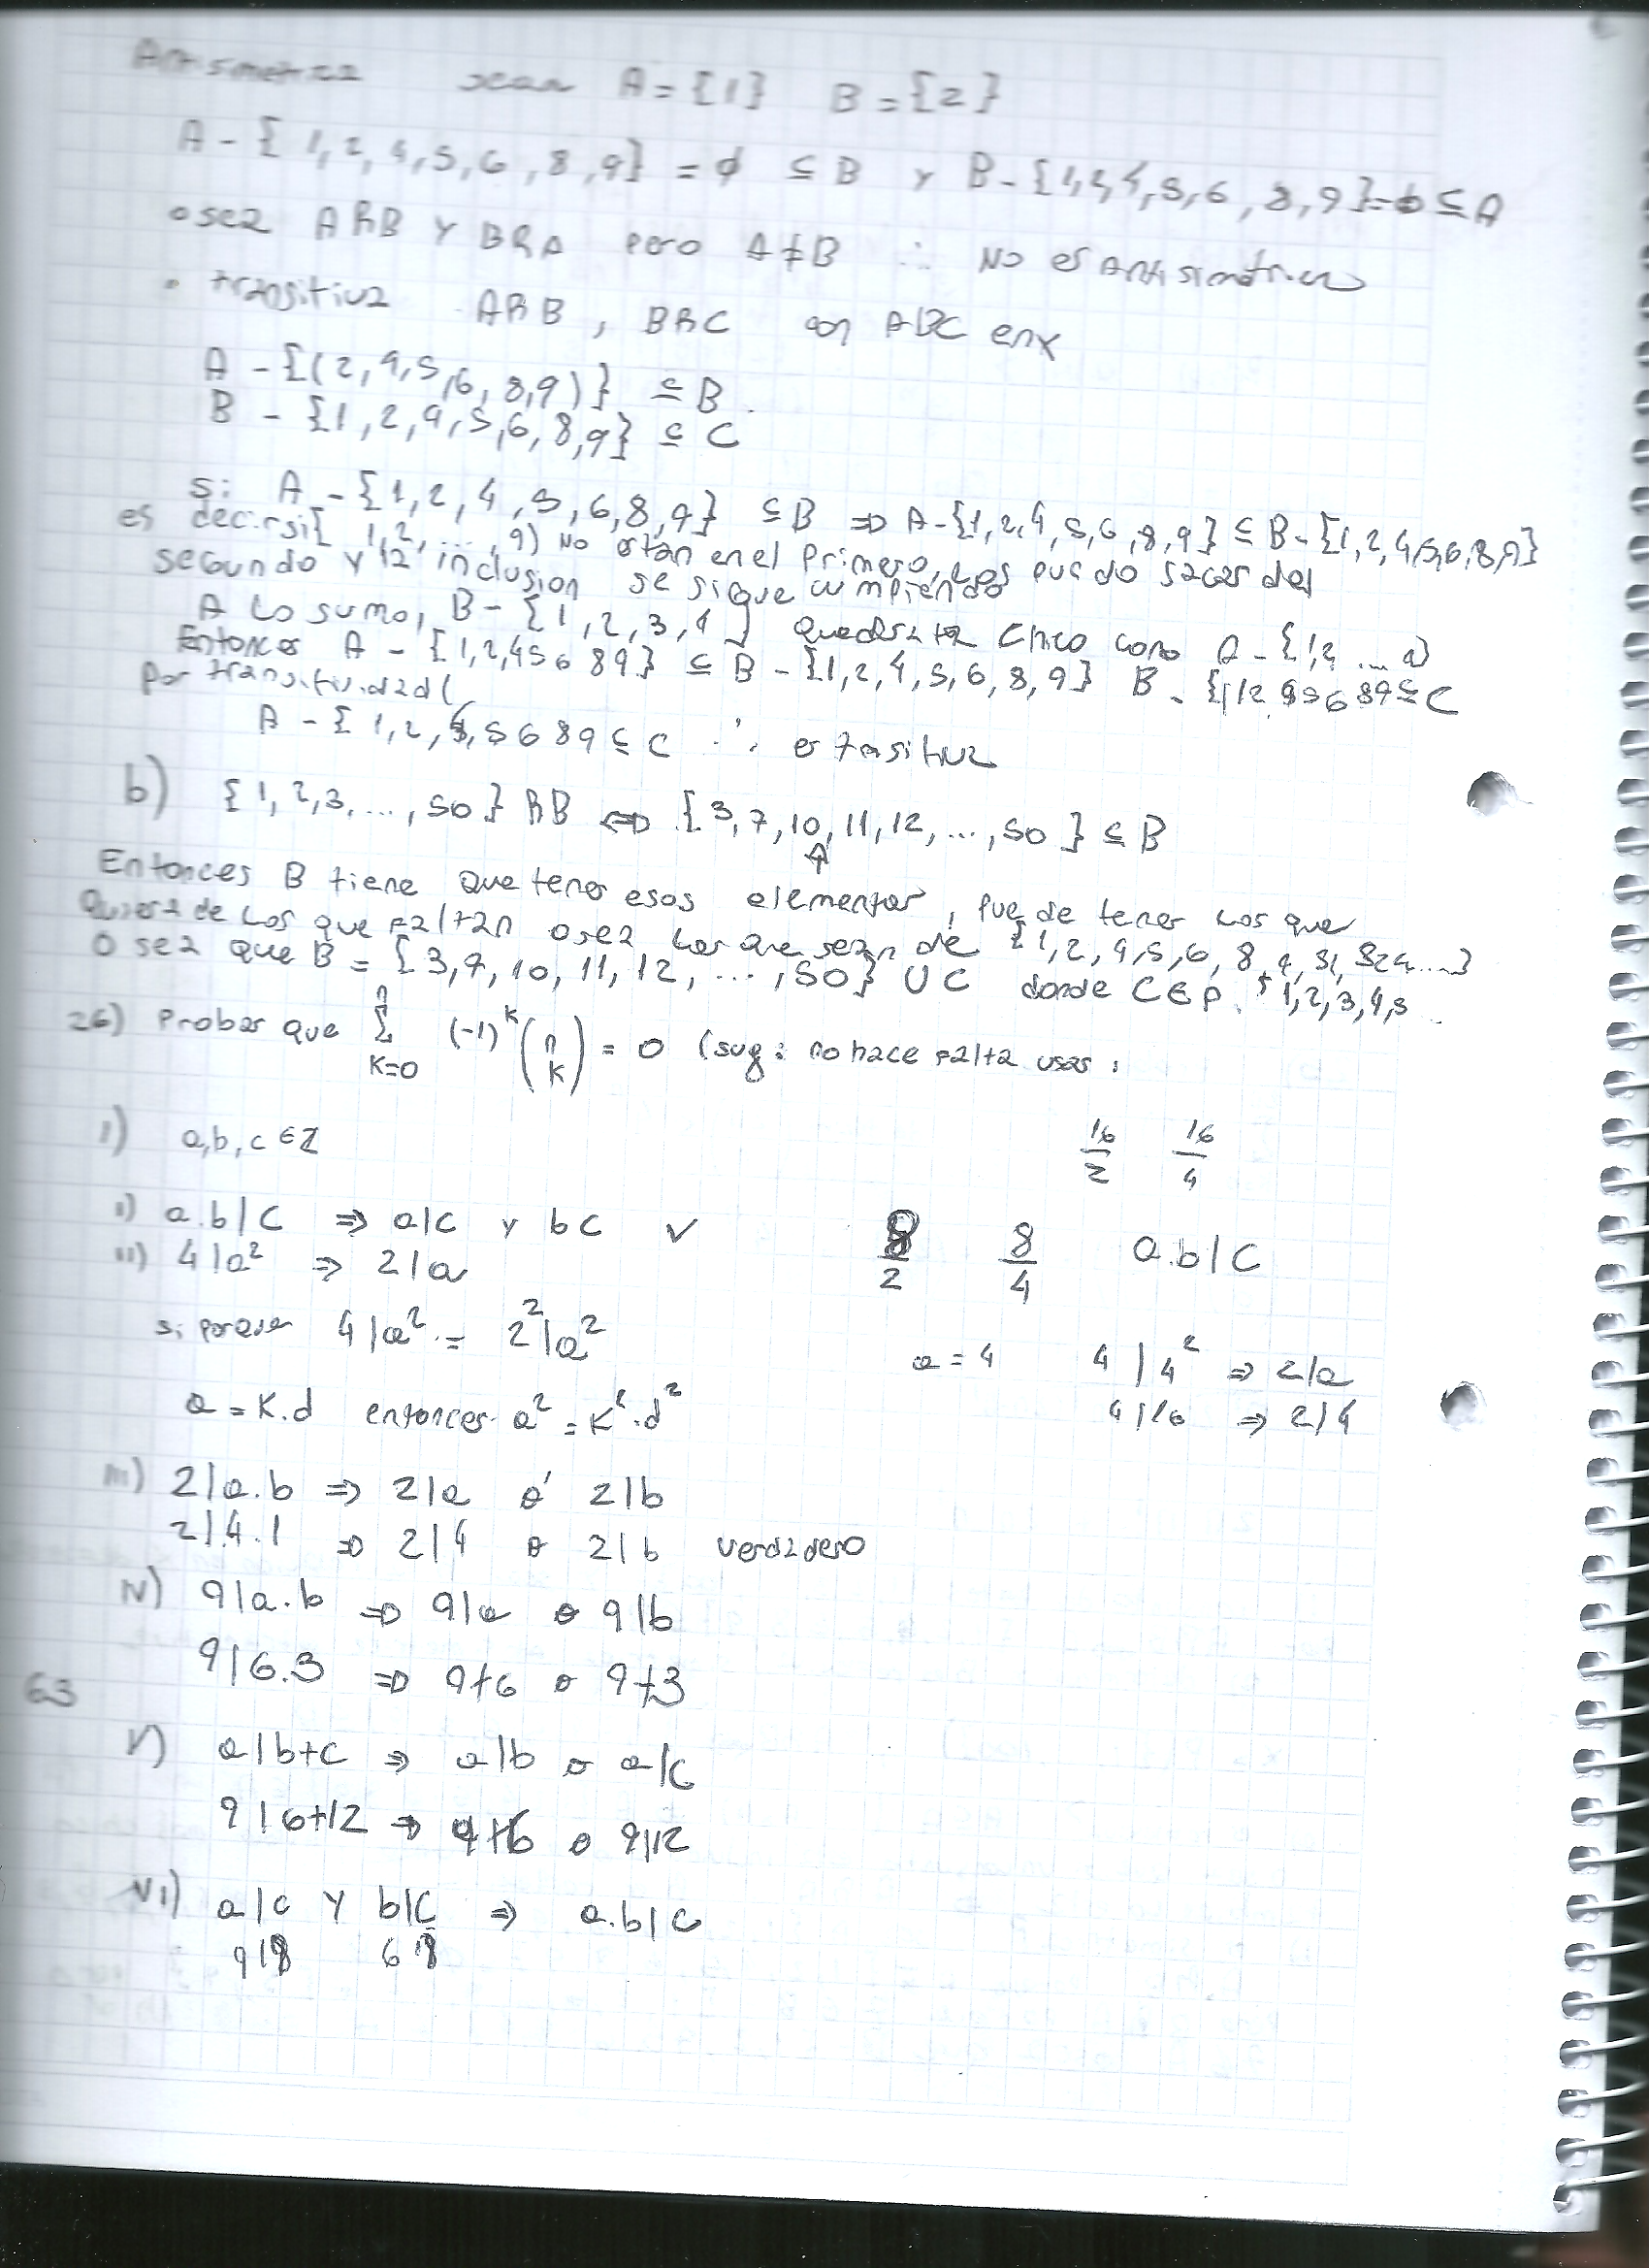 Antisimetrica sean A = {1} B = {2}
A - {1, 2, 4, 5, 6, 8, 9} = ∅ ⊆ B y B - {1, 2, 4, 5, 6, 8, 9} = ∅ ⊆ A
o sea ARB Y BRA pero A ≠ B ∴ No es Antisimetrica
• transitiva ARB, BRC con ABC en x
A - {1 2, 4, 5, 6, 8, 9)} ⊆ B.
B - {1, 2, 4, 5, 6, 8, 9} ⊆ C
Si A - {1, 2, 4, 5, 6, 8, 9} ⊆ B ⇒ A - {1, 2, 4, 5, 6, 8, 9} ⊆ B - {1, 2, 4, 5, 6, 8, 9}
es decir si { 1, 2, ..., 9) No están en el Primero, los puedo sacar del
segundo y la inclusion se sigue cumpliendo
A Lo sumo, B - {1, 2, 3, 4 } cinco como A - {1, 2 ... 9}
Entonces A - {1, 2, 4 5 6 8 9} ⊆ B - {1, 2, 4, 5, 6, 8, 9} B - {1 2 4 5 6 8 9 ⊆ C
Por transitividad (
A - { 1, 2, 4, 5 6 8 9 ⊆ C ∴ es tasitiva
b) {1, 2, 3, ..., 50} RB ⇔ {3, 7, 10, 11, 12, ..., 50} ⊆ B
Entonces B tiene que tener esos elementos, puede tener los que
Quiera de los que faltan o sea los que sean de {1, 2, 4, 5, 6, 8, 9, 51, 52 ....}
O sea que B = {3, 7, 10, 11, 12, ..., 50} ∪ C donde C ∈ P. {1, 2, 3, 4, 5 ..
26) Probar que n Σ K=0 (-1)^k (n k) = 0 (sug: no hace falta usar :
1) a, b, c ∈ Z 16/2 16/4
i) a.b | c ⇒ a|c y b c ✓ 8/2 8/4 a.b | c
ii) 4 | a² ⇒ 2 | a
si porque 4 | a² = 2² | a² a = 4 4 | 4² ⇒ 2/a
a = K.d entonces a² = K².d² 4 | 16 ⇒ 2 | 4
III) 2 | a.b ⇒ 2 | a ó 2 | b
2 | 4.1 ⇒ 2 | 4 o 2 | b verdadero
IV) 9 | a.b ⇒ 9 | a o 9 | b
9 | 6.3 ⇒ 9 ∤ 6 o 9 ∤ 3
63
V) a | b+c ⇒ a | b o a | c
9 | 6+12 ⇒ 9 ∤ 6 o 9 | 12
VI) a | c Y b | c ⇒ a.b | c
9 | 8 6 8